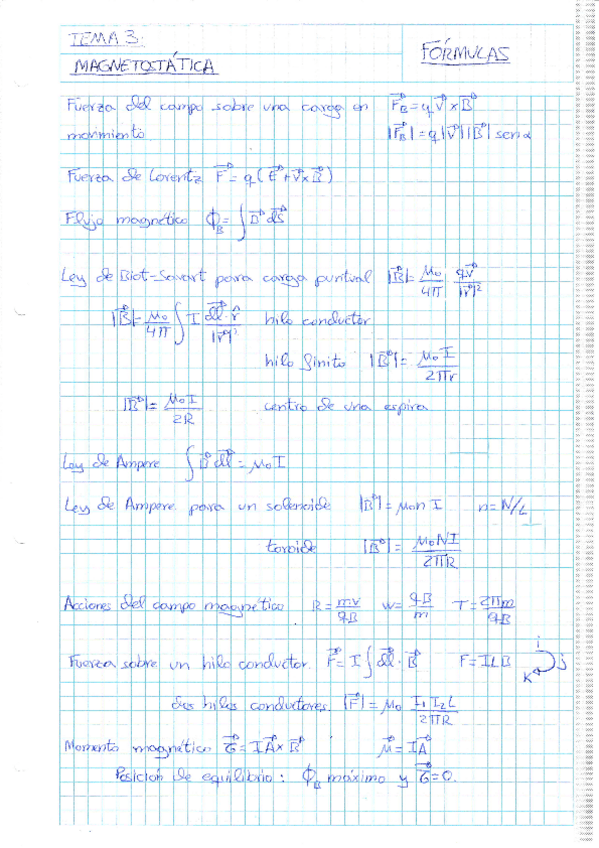 TEMA 3:
MAGNETOSTÁTICA
FÓRMULAS
Fuerza del campo sobre una carga en F⃗B = q V⃗ × B⃗
movimiento. |F⃗B| = q |V⃗| |B⃗| sen α
Fuerza de Lorentz F⃗ = q (E⃗ + V⃗ × B⃗)
Flujo magnético ΦB = ∫ B⃗ dS⃗
Ley de Biot-Savart para carga puntual |B⃗| = μ₀/4π · qv⃗/|r⃗|²
|B⃗| = μ₀/4π ∫ I dl⃗ · r̂/|r⃗|² hilo conductor
hilo finito |B⃗| = μ₀I/2πr
|B⃗| = μ₀I/2R centro de una espira
Ley de Ampere ∫ B⃗ dl⃗ = μ₀I
Ley de Ampere para un solenoide |B⃗| = μ₀ n I n = N/L
toroide |B⃗| = μ₀NI/2πR
Acciones del campo magnético R = mv/qB w = qB/m T = 2πm/qB
Fuerza sobre un hilo conductor. F⃗ = I ∫ dl⃗ · B⃗ F = ILB i j k
dos hilos conductores. |F⃗| = μ₀ I₁ I₂ L/2πR
Momento magnético τ⃗ = IA⃗ × B⃗ μ⃗ = IA⃗
Posición de equilibrio: ΦB máximo y τ⃗ = 0.